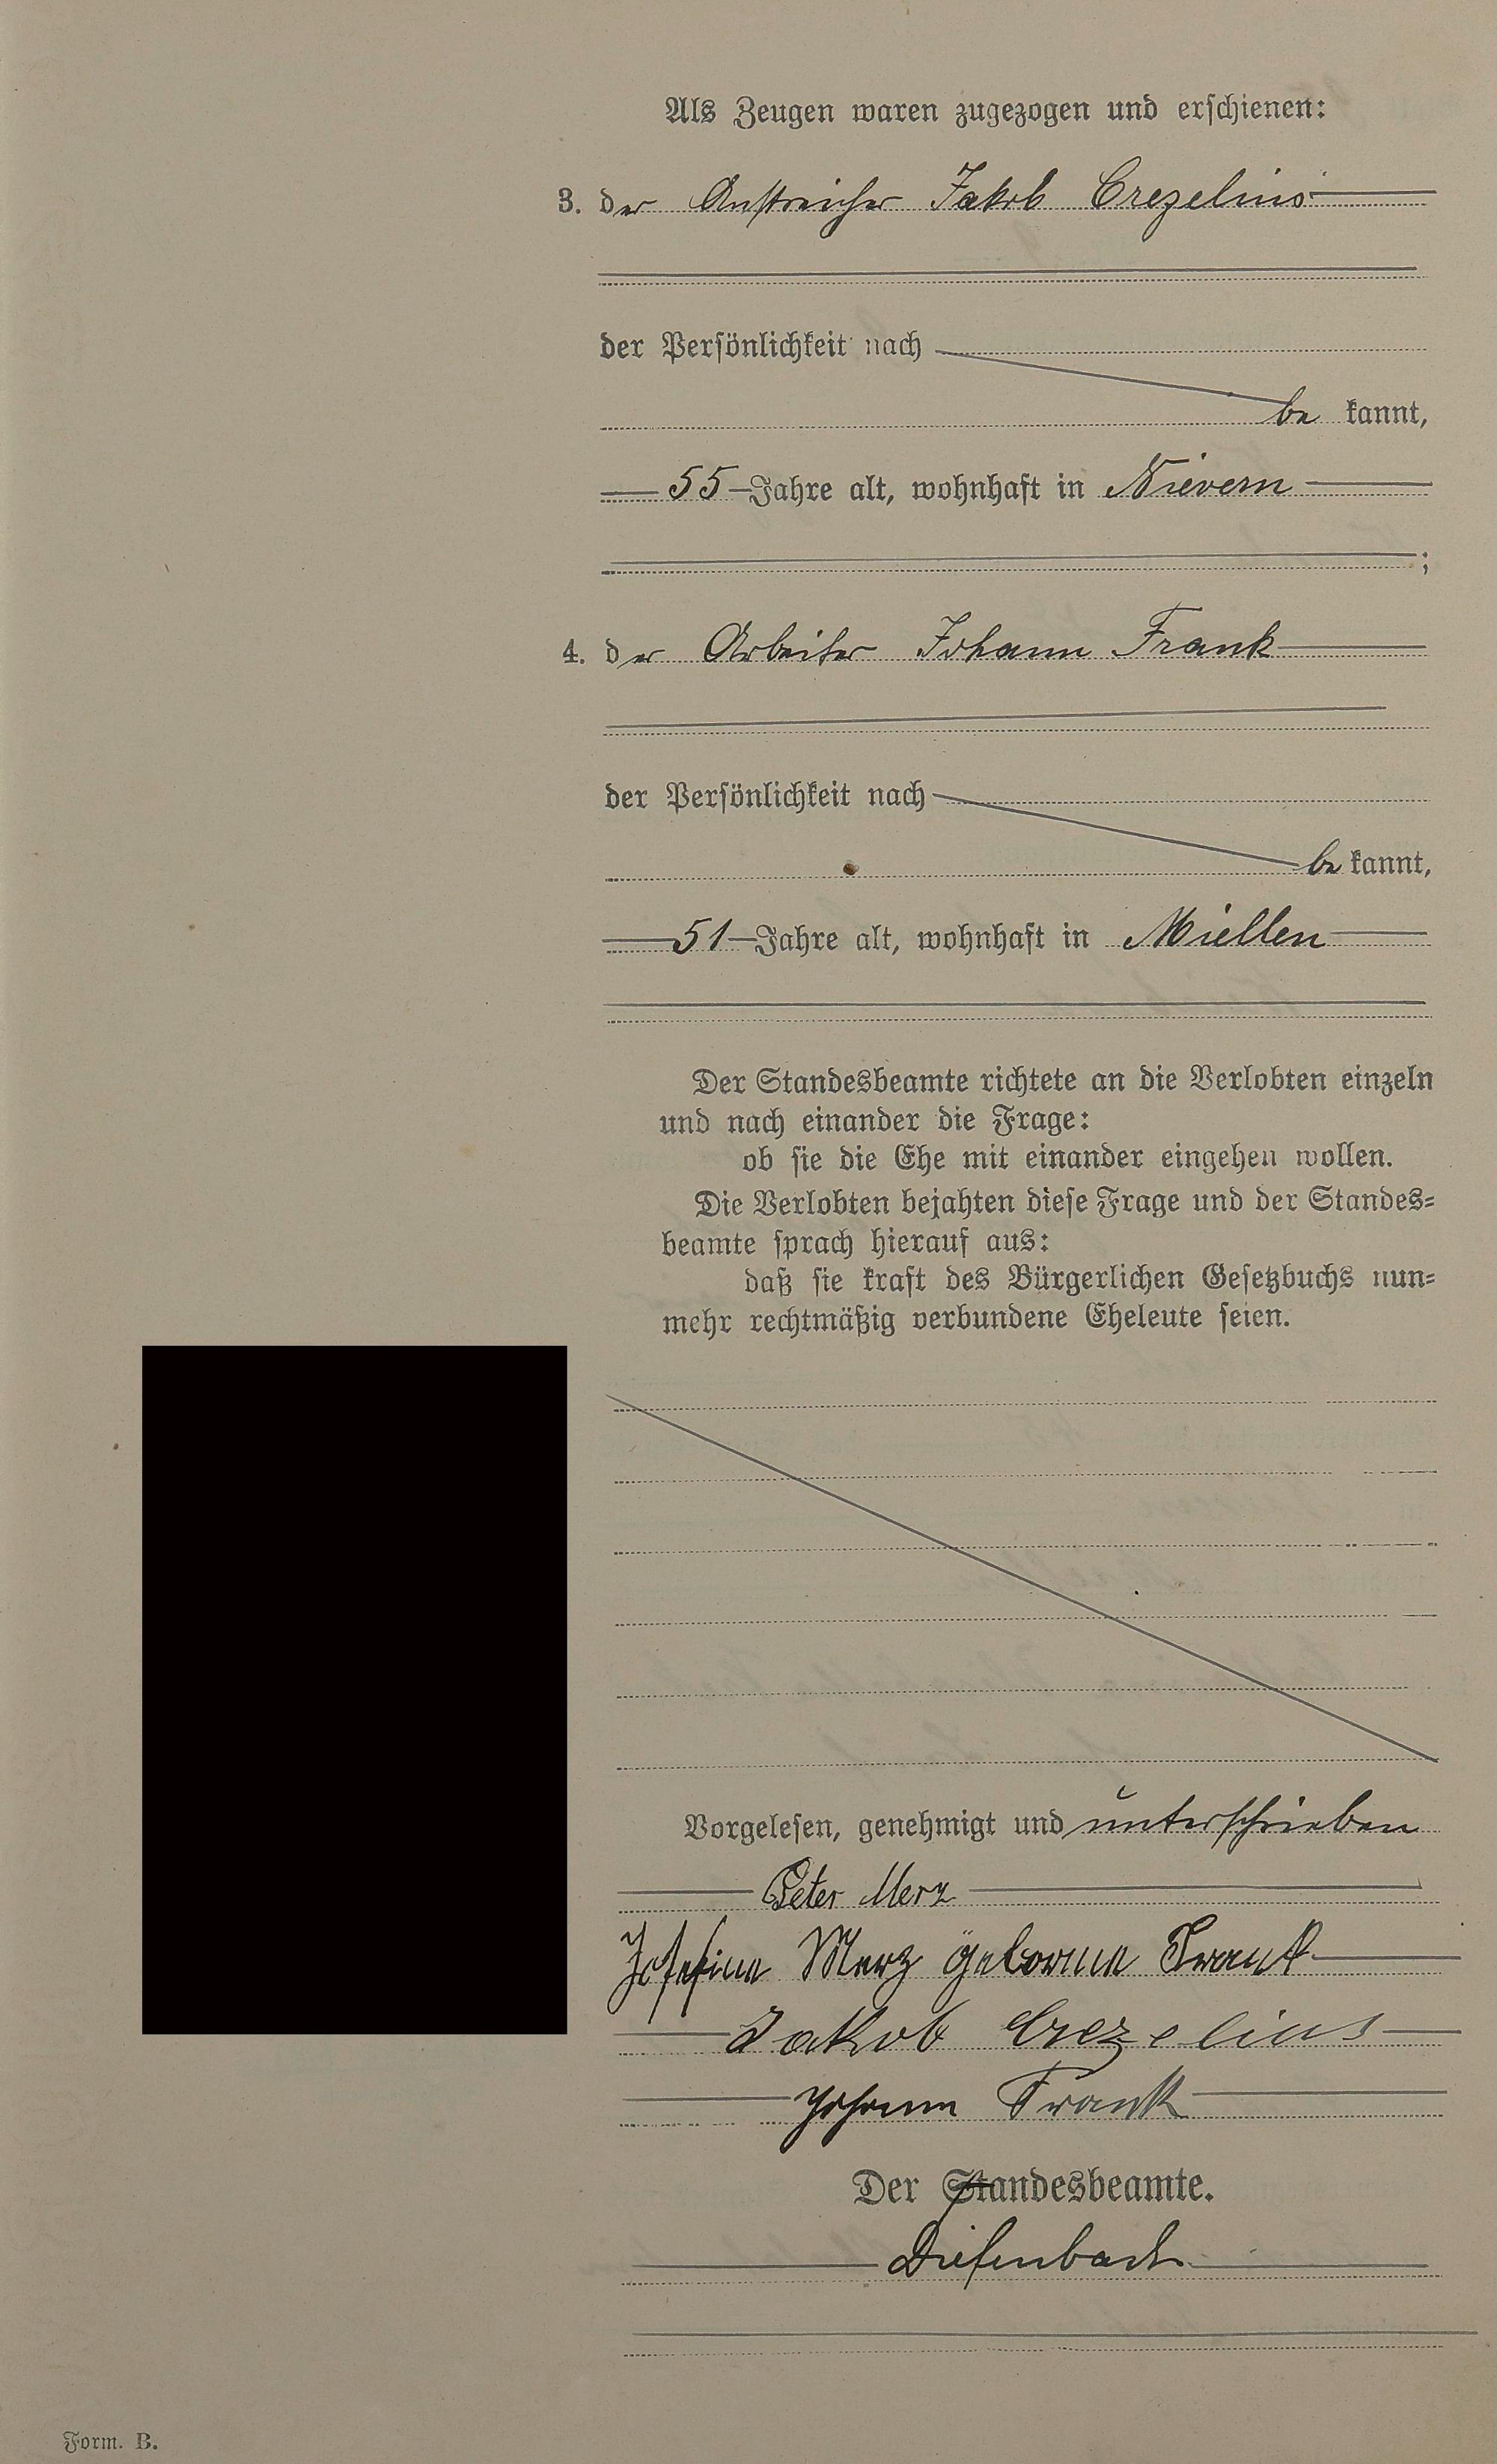 Als Zeugen waren zugezogen und erschienen:
3. der Anstreicher Jakob Crezelius
der Persönlichkeit nach
be kannt,
55 Jahre alt, wohnhaft in Nievern
;
4. der Arbeiter Johann Frank
der Persönlichkeit nach
be kannt,
51 Jahre alt, wohnhaft in Miellen
Der Standesbeamte richtete an die Verlobten einzeln
und nach einander die Frage:
ob sie die Ehe mit einander eingehen wollen.
Die Verlobten bejahten diese Frage und der Standes-
beamte sprach hierauf aus:
daß sie kraft des Bürgerlichen Gesetzbuchs nun-
mehr rechtmäßig verbundene Eheleute seien.
Vorgelesen, genehmigt und unterschrieben
Peter Merz
Josefine Merz geborene Frank
Jakob Crezelius
Johann Frank
Der Standesbeamte.
Diefenbach
Form. B.